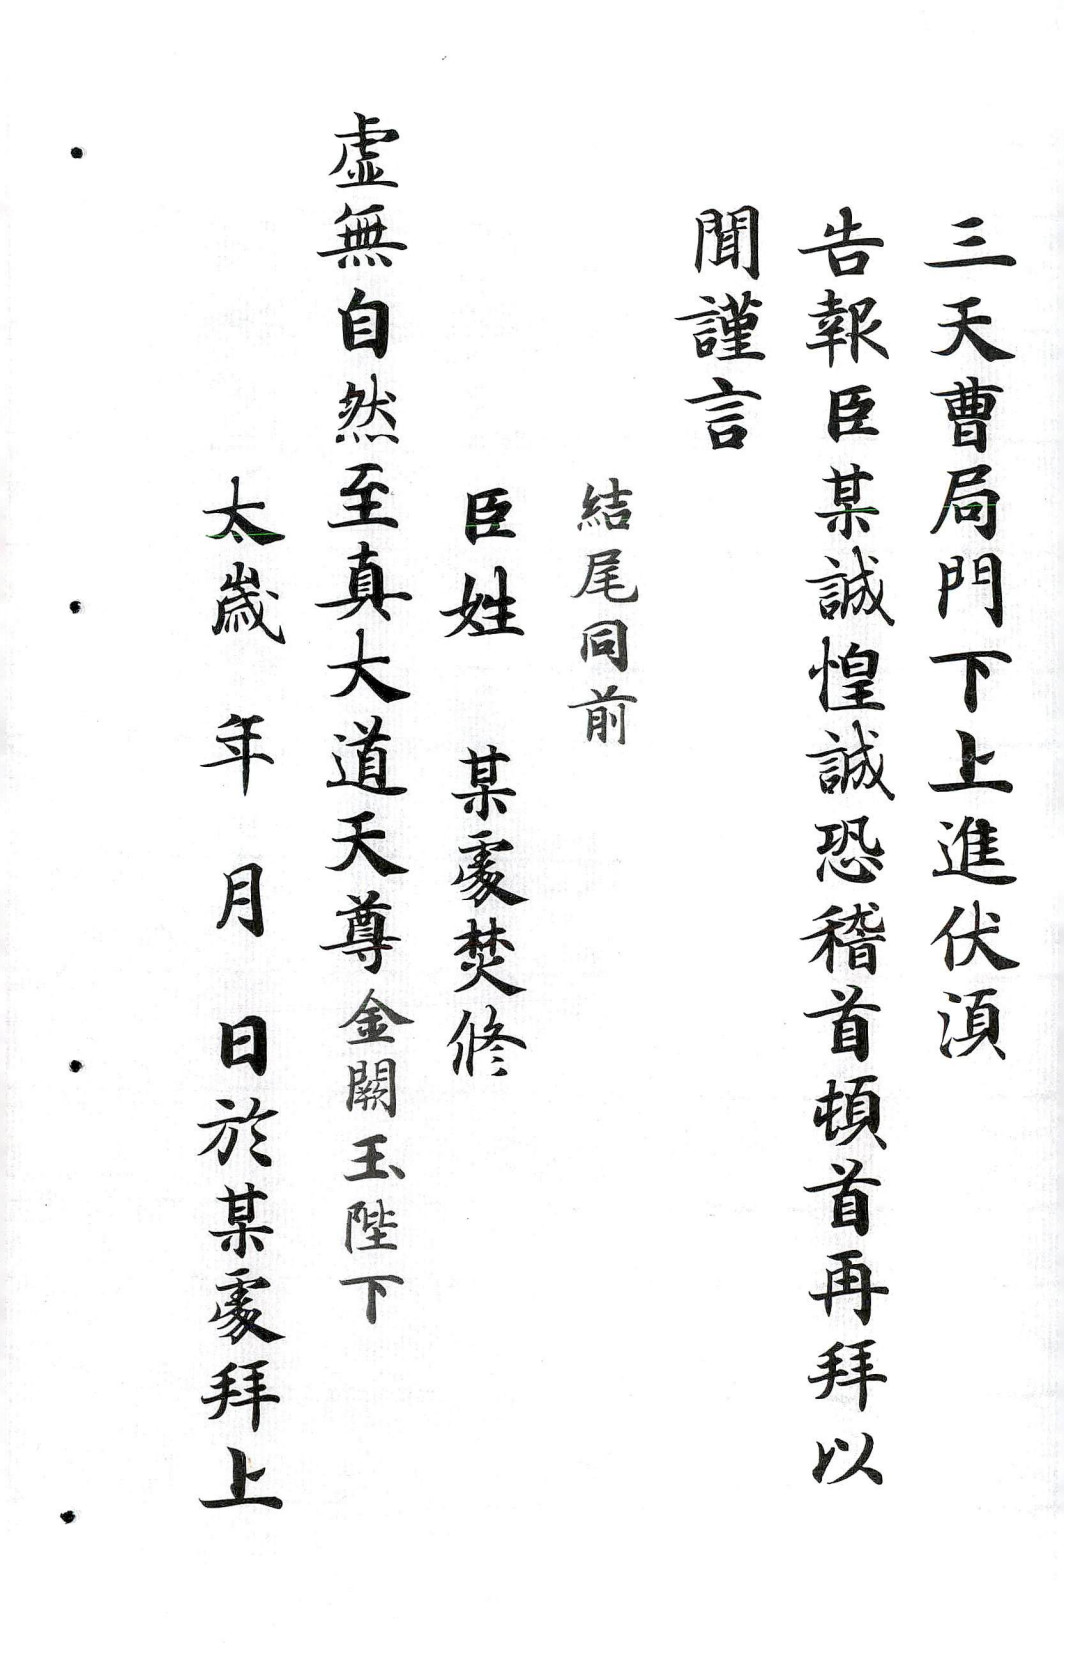 三天曹局門下上進伏湏
告報臣某誠惶誠恐稽首頓首再拜以
聞謹言
結尾同前
臣姓 某處焚修
虛無自然至真大道天尊金闕玉陛下
太歲 年 月 日於某處拜上